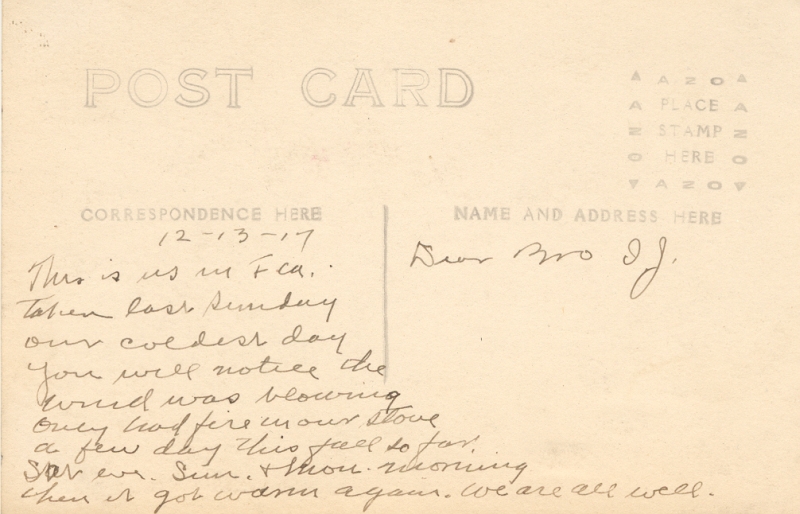 POST CARD
AZO
A PLACE A
N STAMP N
O HERE O
AZO
CORRESPONDENCE HERE
NAME AND ADDRESS HERE
12-13-17
This is us in Fla.
taken last Sunday
our coldest day
you will notice the
wind was blowing
only had fire in our stove
a few day this fall so far.
Sat eve. Sun. & Mon. morning
then it got warm again. We are all well.
Dear Bro I J.